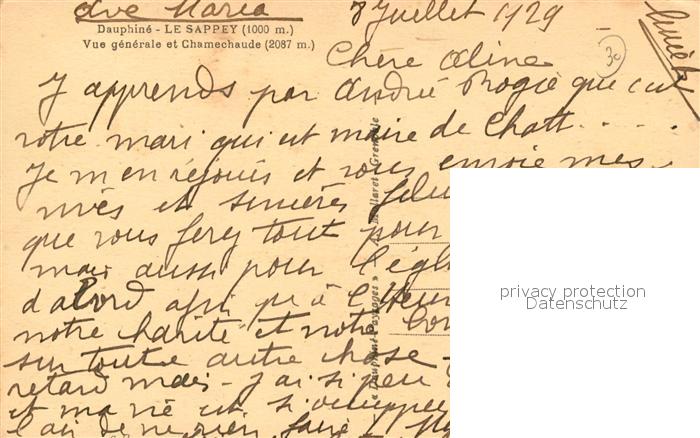 Ave Maria
7 Juillet 1929
Dauphiné - LE SAPPEY (1000 m.)
Vue générale et Chamechaude (2087 m.)
30
Chère Aline
J'apprends par André Rogié que c'est
votre mari qui est maire de Chatt....
Je m'en réjouis et vous envoie mes
vives et sincères
que vous ferez tout pour
mais aussi pour l'égl
d'abord afin qu'à l'heur
notre charité et notre
sur toute autre chose
retard mais - j'ai si peu
et ma vie est si
l'air de ne rien faire
« Dauphiné-Paysages »
Grenoble
privacy protection
Datenschutz